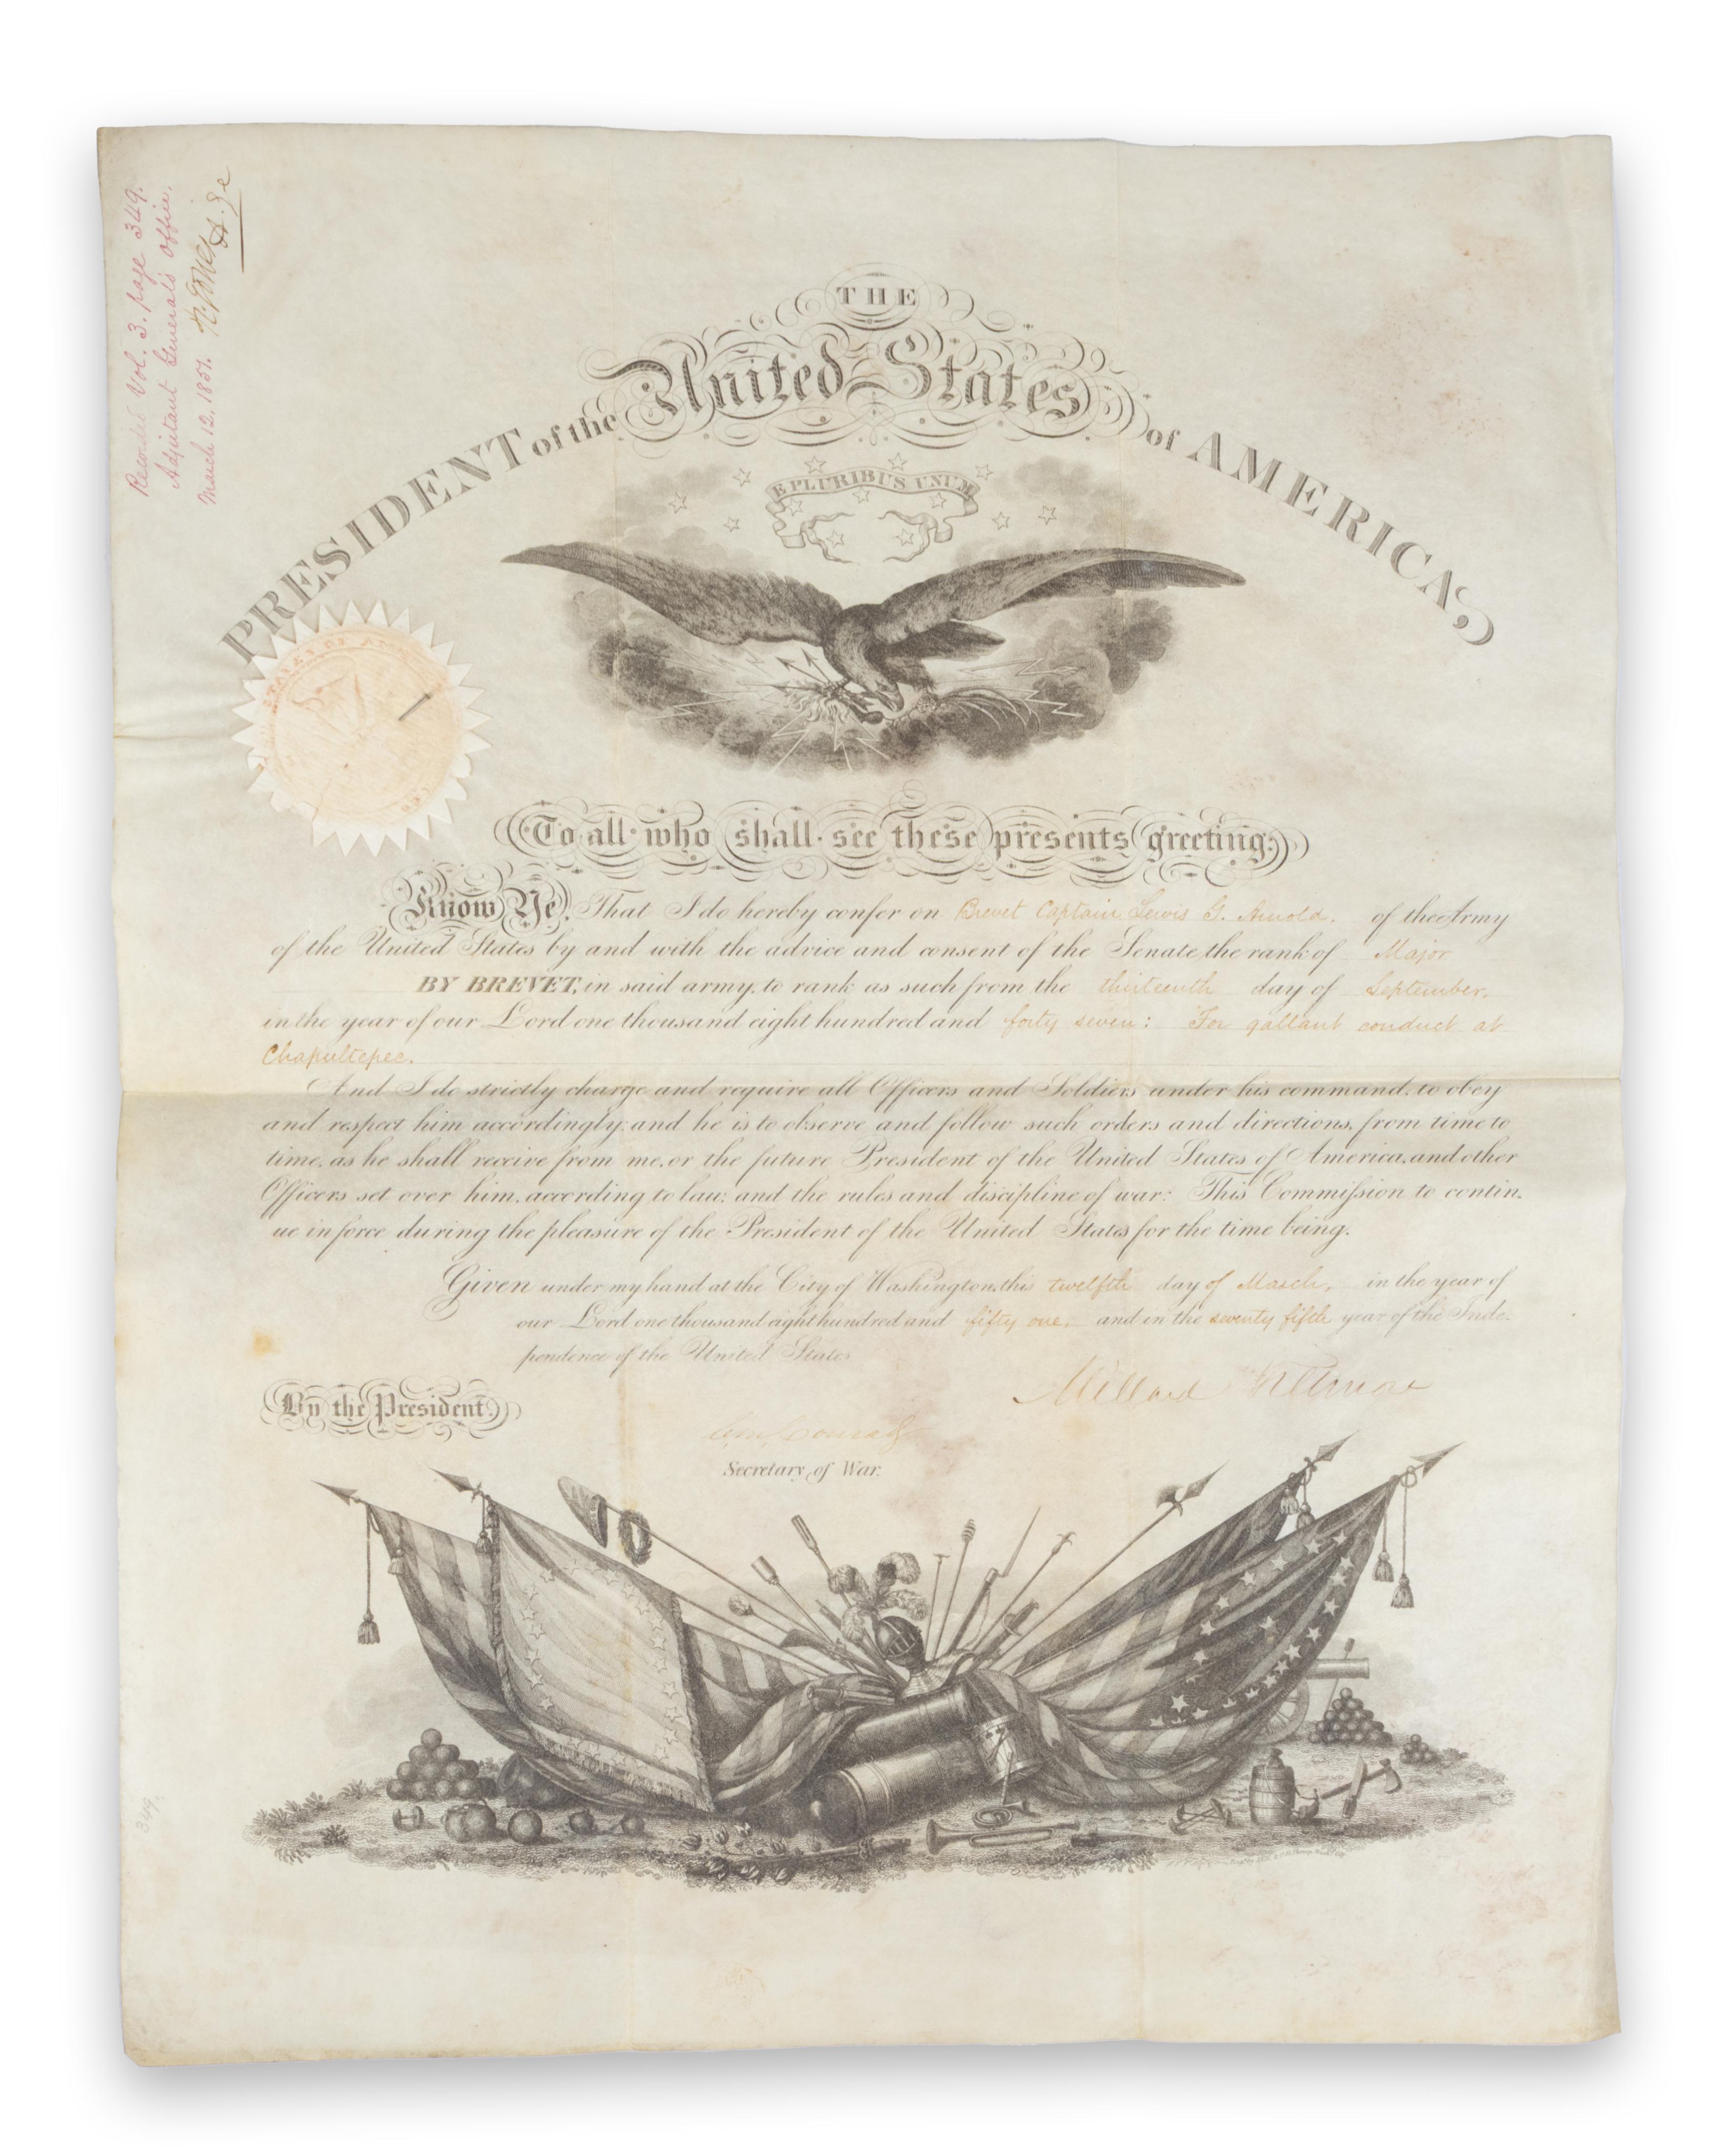 Recorded Vol. 3. page 349.
Adjutant General's Office.
March 12, 1851.
THE
PRESIDENT of the United States of AMERICA,
E PLURIBUS UNUM
To all who shall see these presents greeting:
Know Ye, That I do hereby confer on Brevet Captain Lewis G. Arnold. of the Army
of the United States by and with the advice and consent of the Senate the rank of Major
BY BREVET, in said army, to rank as such from the thirteenth day of September,
in the year of our Lord one thousand eight hundred and forty seven: For gallant conduct at
Chapultepec.
And I do strictly charge and require all Officers and Soldiers under his command, to obey
and respect him accordingly: and he is to observe and follow such orders and directions, from time to
time, as he shall receive from me, or the future President of the United States of America, and other
Officers set over him, according to law; and the rules and discipline of war: This Commission to contin-
ue in force during the pleasure of the President of the United States for the time being.
Given under my hand at the City of Washington, this twelfth day of March, in the year of
our Lord one thousand eight hundred and fifty one, and in the seventy fifth year of the Inde-
pendence of the United States
Millard Fillmore
By the President.
C. M. Conrad
Secretary of War.
349.